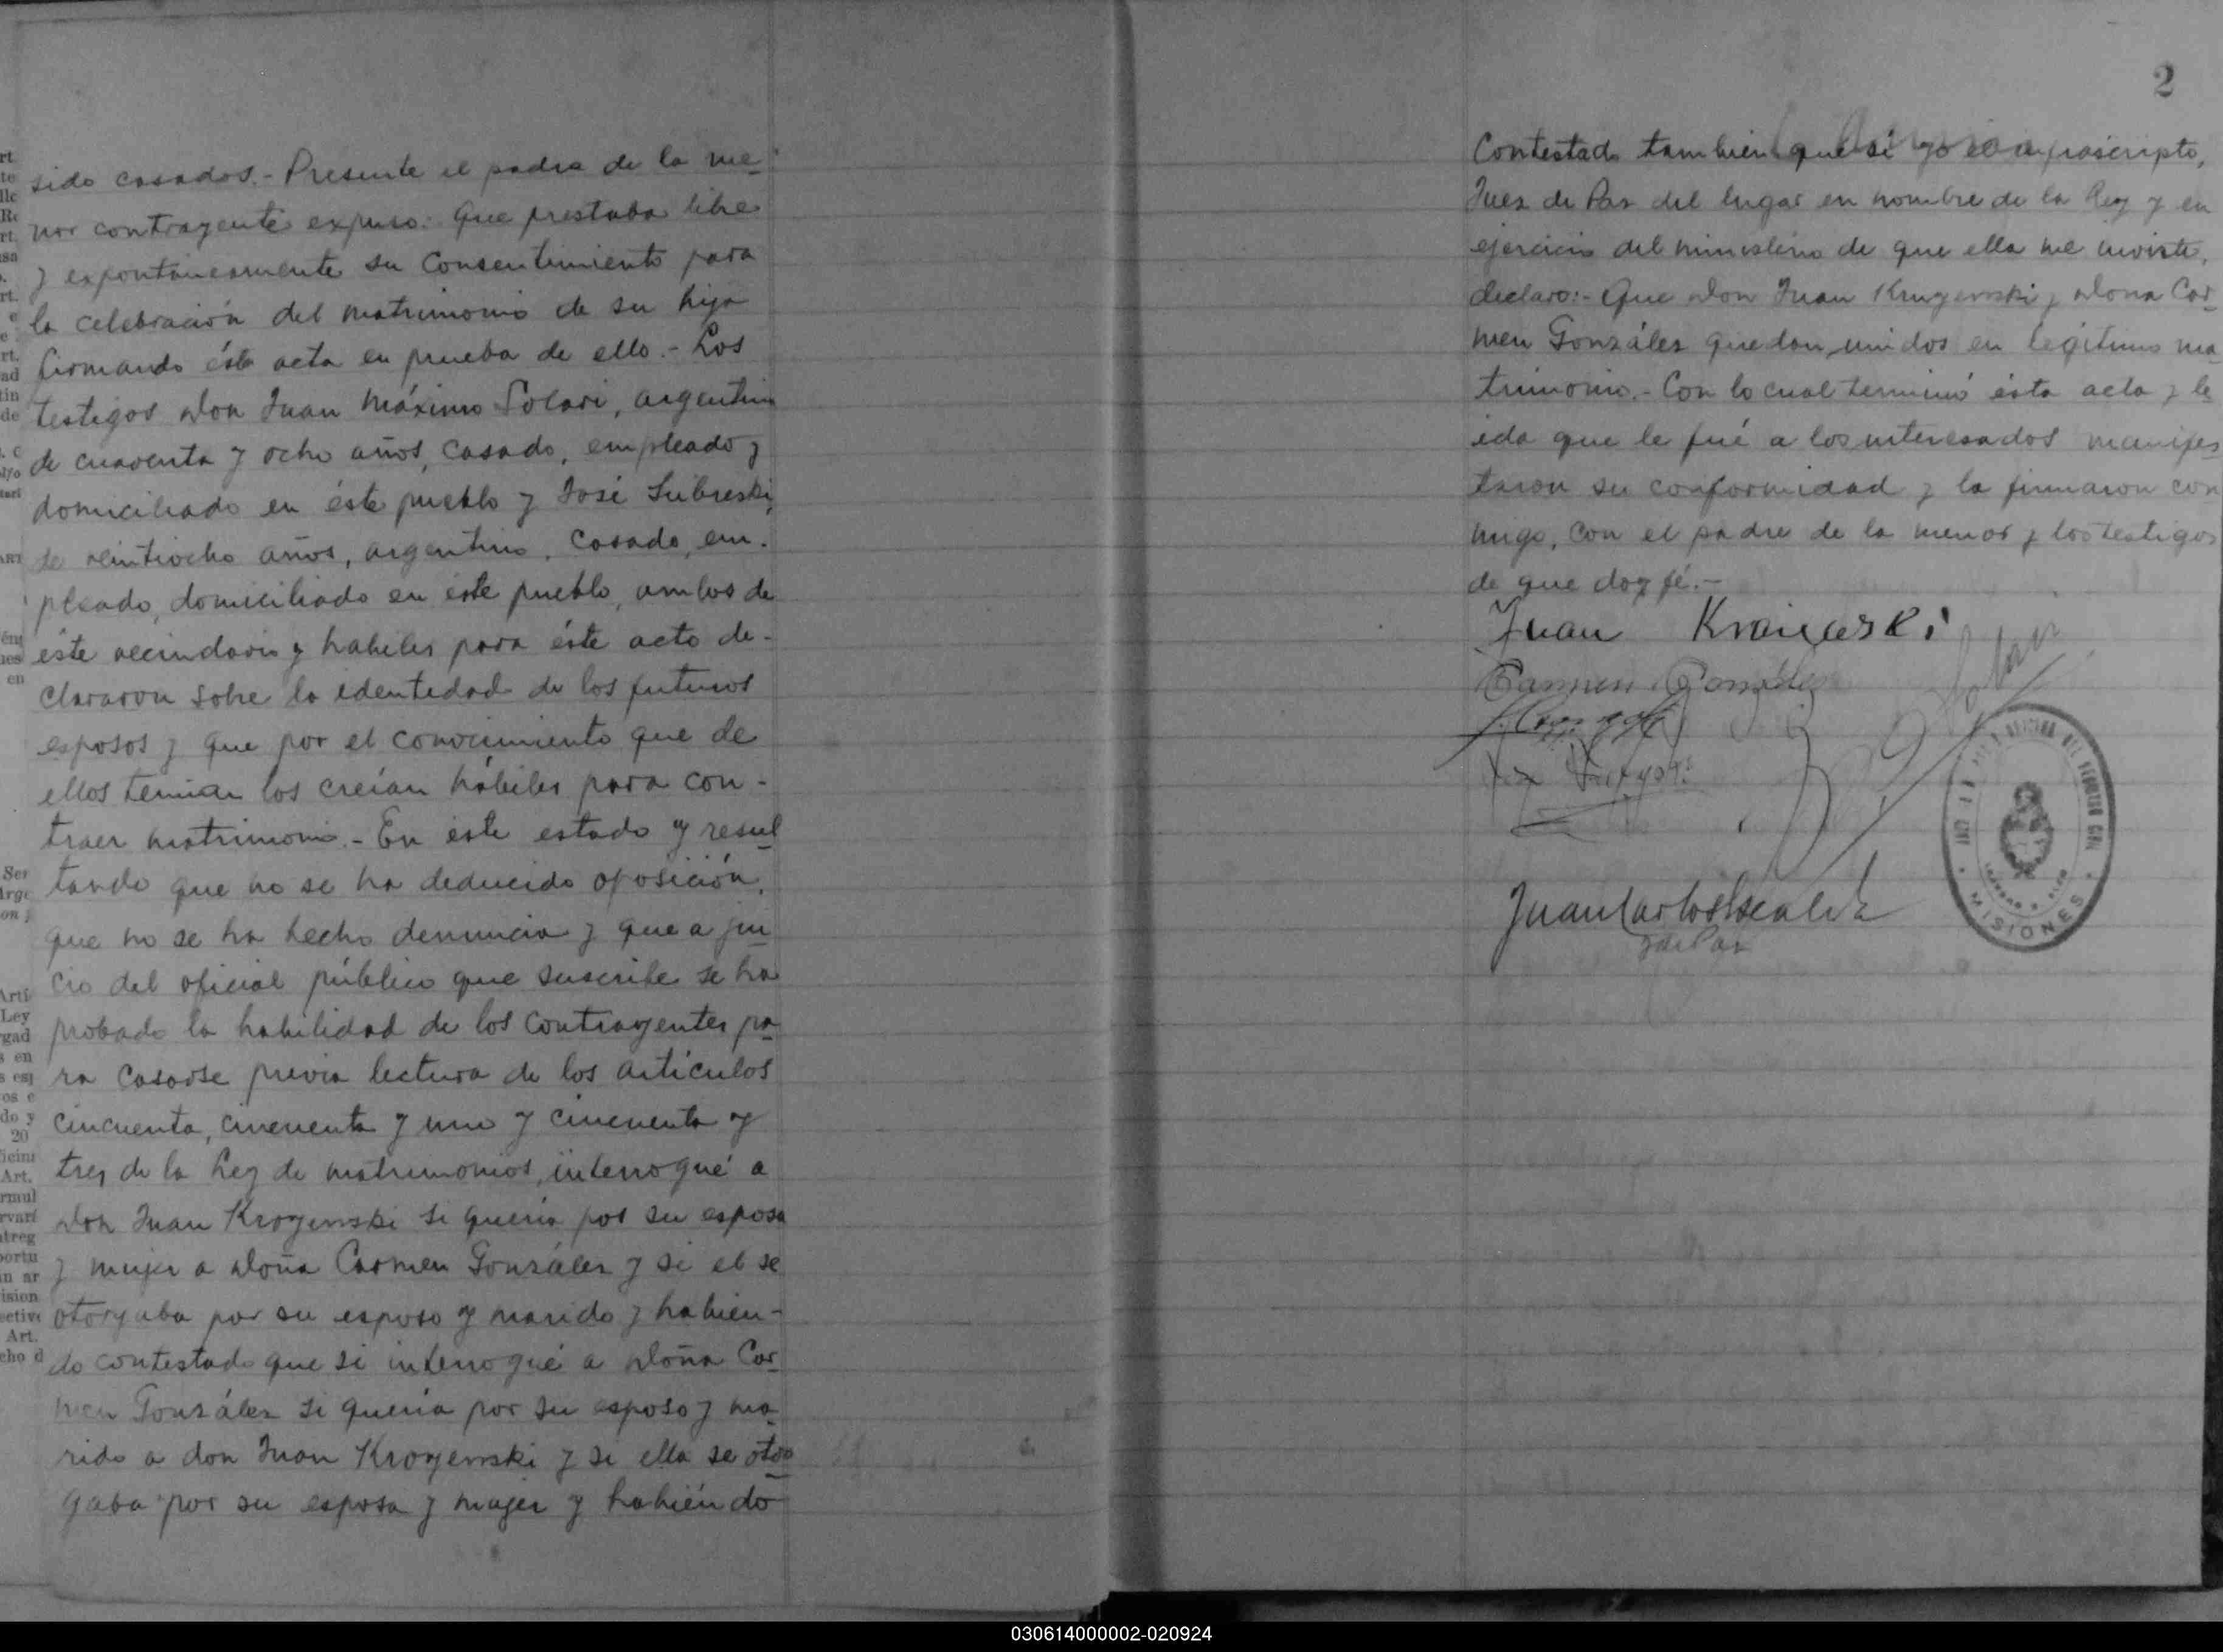 sido casados.- Presente el padre de la me-
nor contrayente expuso: Que prestaba libre
y espontáneamente su consentimiento para
la celebración del matrimonio de su hija
firmando ésta acta en prueba de ello.- Los
testigos Don Juan Máximo Solari, argentino
de cuarenta y ocho años, casado, empleado y
domiciliado en éste pueblo y José Subreski,
de veintiocho años, argentino, casado, em-
pleado, domiciliado en éste pueblo, ambos de
éste vecindario y habiles para éste acto de-
clararon sobre la identidad de los futuros
esposos y que por el conocimiento que de
ellos tenian los creían hábiles para con-
traer matrimonio.- En éste estado y resul-
tando que no se ha deducido oposición,
que no se ha hecho denuncia y que a jui-
cio del oficial público que suscribe se ha
probado la habilidad de los contrayentes pa-
ra casarse previa lectura de los artículos
cincuenta, cincuenta y uno y cincuenta y
tres de la Ley de matrimonios, interrogué a
Don Juan Kroyenski si quería por su esposa
y mujer a Doña Carmen González y si el se
otorgaba por su esposo y marido y habien-
do contestado que si interrogué a Doña Car-
men González si quería por su esposo y ma-
rido a don Juan Kroyenski y si ella se otor-
gaba por su esposa y mujer y habiéndo
2
Contestado también que si yo el infrascripto,
Juez de Paz del lugar en nombre de la Ley y en
ejercicio del ministerio de que ella me inviste,
declaro:- Que Don Juan Kruyenski y Dona Car-
men González quedan unidos en legítimo ma-
trimonio.- Con lo cual terminó ésta acta y le-
ida que le fué a los interesados manifes-
taron su conformidad y la firmaron con-
migo, con el padre de la menor y los testigos
de que doy fé.-
Juan Kraiewski
Carmen González
Juan Carlos
J. de Paz
MISIONES
030614000002-020924